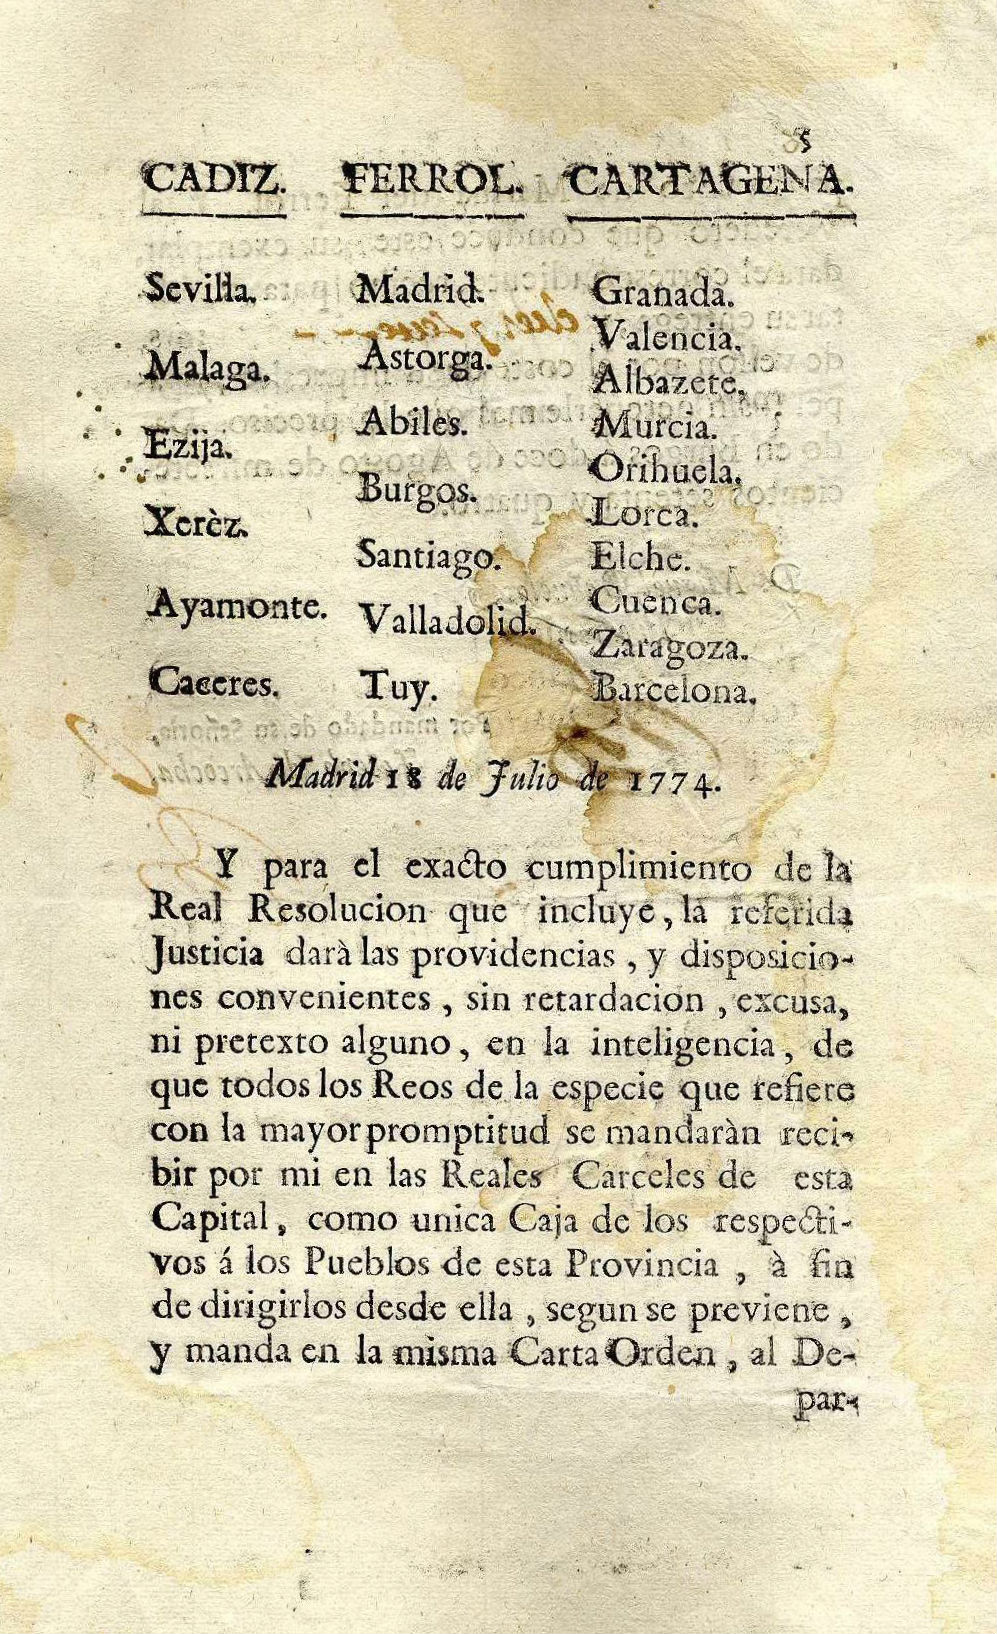 5
CADIZ. FERROL. CARTAGENA.
Sevilla. Madrid. Granada.
Valencia.
Malaga. Astorga. Albazete.
Abiles. Murcia.
Ezija. Orihuela.
Burgos. Lorca.
Xerèz. Elche.
Santiago. Cuenca.
Ayamonte. Valladolid. Zaragoza.
Caceres. Tuy. Barcelona.
Madrid 18 de Julio de 1774.
Y para el exacto cumplimiento de la
Real Resolucion que incluye, la referida
Justicia darà las providencias, y disposicio-
nes convenientes, sin retardacion, excusa,
ni pretexto alguno, en la inteligencia, de
que todos los Reos de la especie que refiere
con la mayor promptitud se mandaràn reci-
bir por mi en las Reales Carceles de esta
Capital, como unica Caja de los respecti-
vos á los Pueblos de esta Provincia, à fin
de dirigirlos desde ella, segun se previene,
y manda en la misma Carta Orden, al De-
par-